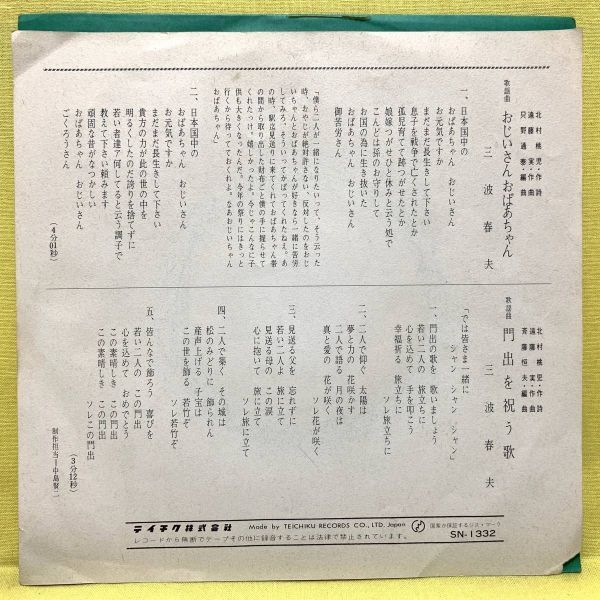 歌謡曲
おじいさん おばあちゃん
北村桃児・作詩
遠藤実・作曲
只野通泰・編曲
三波春夫
一、日本国中の
おばあちゃん おじいさん
お元気ですか
まだまだ長生きして下さい
息子を戦争で亡くされたとか
孤児育てて跡つがせたとか
娘嫁つがせひと休みと云う処で
こんどは孫のお守りして
お国の為に生き抜いた
おばあちゃん おじいさん
御苦労さん
「僕ら二人が一緒になりたいって、そう云った
時、おやじが絶対許さない、反対したのをおじ
いちゃんとおばあちゃんが好きなら一緒に苦労
してみろ、そういってかばってくれたねえ。あ
の時、駅迄見送りに来てくれておばあちゃん帯
の間から取り出した財布ごと僕の手に握らせて
くれたっけ。嬉しかったよ。今じゃこんなに子
供も大きくなってなんだ。今年の祭りにはきっと
行くから待ってておくれよ。なあおじいちゃん
おばあちゃん」
二、日本国中の
おばあちゃん おじいさん
お元気ですか
まだまだ長生きして下さい
貴方の力が此の世の中を
明るくしたのだ誇りを捨てずに
若い者達ア何してると云う調子で
教えて下さい頼みます
頑固な昔がなつかしい
おばあちゃん おじいさん
ごくろうさん
(4分01秒)
歌謡曲
門出を祝う歌
北村桃児・作詩
遠藤実・作曲
斉藤恒夫・編曲
三波春夫
「では皆さま一緒に
シャン シャン シャン」
一、門出の歌を 歌いましょう
若い二人の 旅立ちに
心を込めて 手を叩こう
幸福祈る 旅立ちに
ソレ旅立ちに
二、二人で仰ぐ 太陽は
夢と力の 花咲かす
二人で語る 月の夜は
真と愛の 花が咲く
ソレ花が咲く
三、見送る父を 忘れずに
若い二人よ 旅に立て
見送る母の この涙
心に抱いて 旅に立て
ソレ旅に立て
四、二人で築く その城は
松のみどりに 飾られん
産声上げる 子宝は
この世を飾る 若竹ぞ
ソレ若竹ぞ
五、皆んなで飾ろう 喜びを
若い二人の この門出
心を込めて おめでとう
この素晴しき この門出
この素晴しき この門出
ソレこの門出
(3分12秒)
制作担当=中島賢二
テイチク株式会社 Made by TEICHIKU RECORDS CO., LTD. Japan
国家が保証するジス・マーク
レコードから無断でテープその他に録音することは法律で禁止されています。
SN-1332